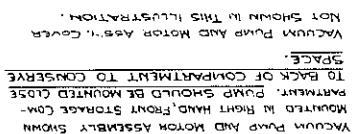 VACUUM PUMP AND MOTOR ASSEMBLY SHOWN
MOUNTED IN RIGHT HAND, FRONT STORAGE COM-
PARTMENT. PUMP SHOULD BE MOUNTED CLOSE
TO BACK OF COMPARTMENT TO CONSERVE
SPACE.
VACUUM PUMP AND MOTOR ASS'Y. COVER
NOT SHOWN IN THIS ILLUSTRATION.